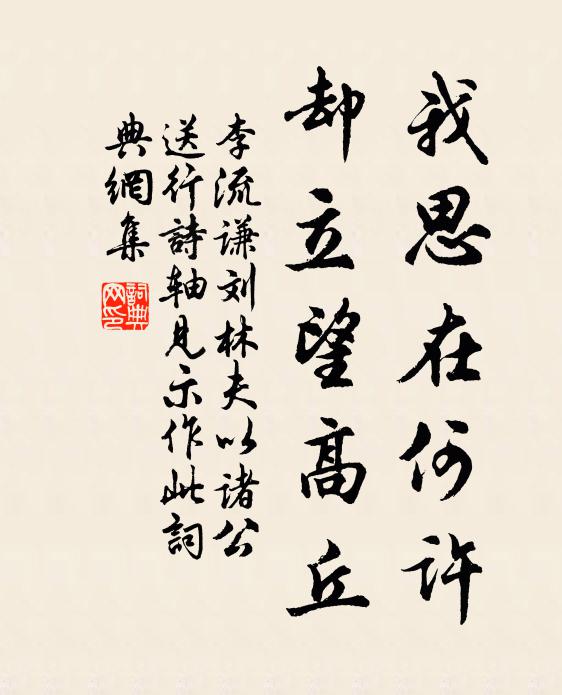 我思在何许
却立望高丘
李流谦刘林夫以诸公
送行詩軸見示作此詞
典網集
詞典网印